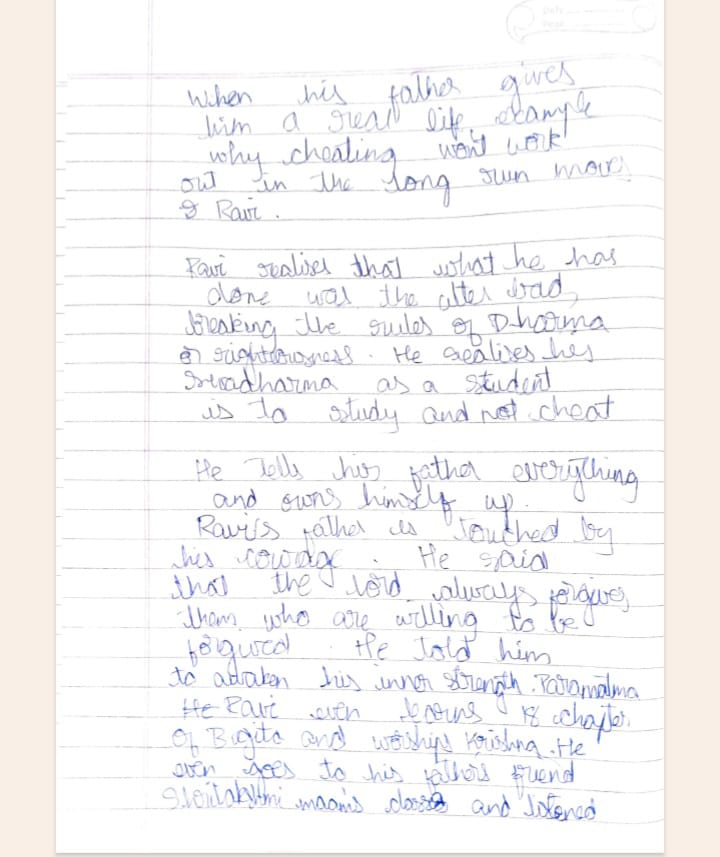 When his father gives
him a real life example
why cheating won't work
out in the long run moves
& Ravi.
Ravi realises that what he has
done was the utter bad,
breaking the rules of Dharma
or righteousness. He realises his
Swadharma as a student
is to study and not cheat
He tells his father everything
and owns himself up.
Ravi's father is touched by
his courage. He said
that the lord always forgives
them who are willing to be
forgived. He told him
to awaken his inner strength. Paramatma
He Ravi even learns 18 chapter
Of Bgita and worships Krishna. He
even goes to his fathers friend
maam's and listened